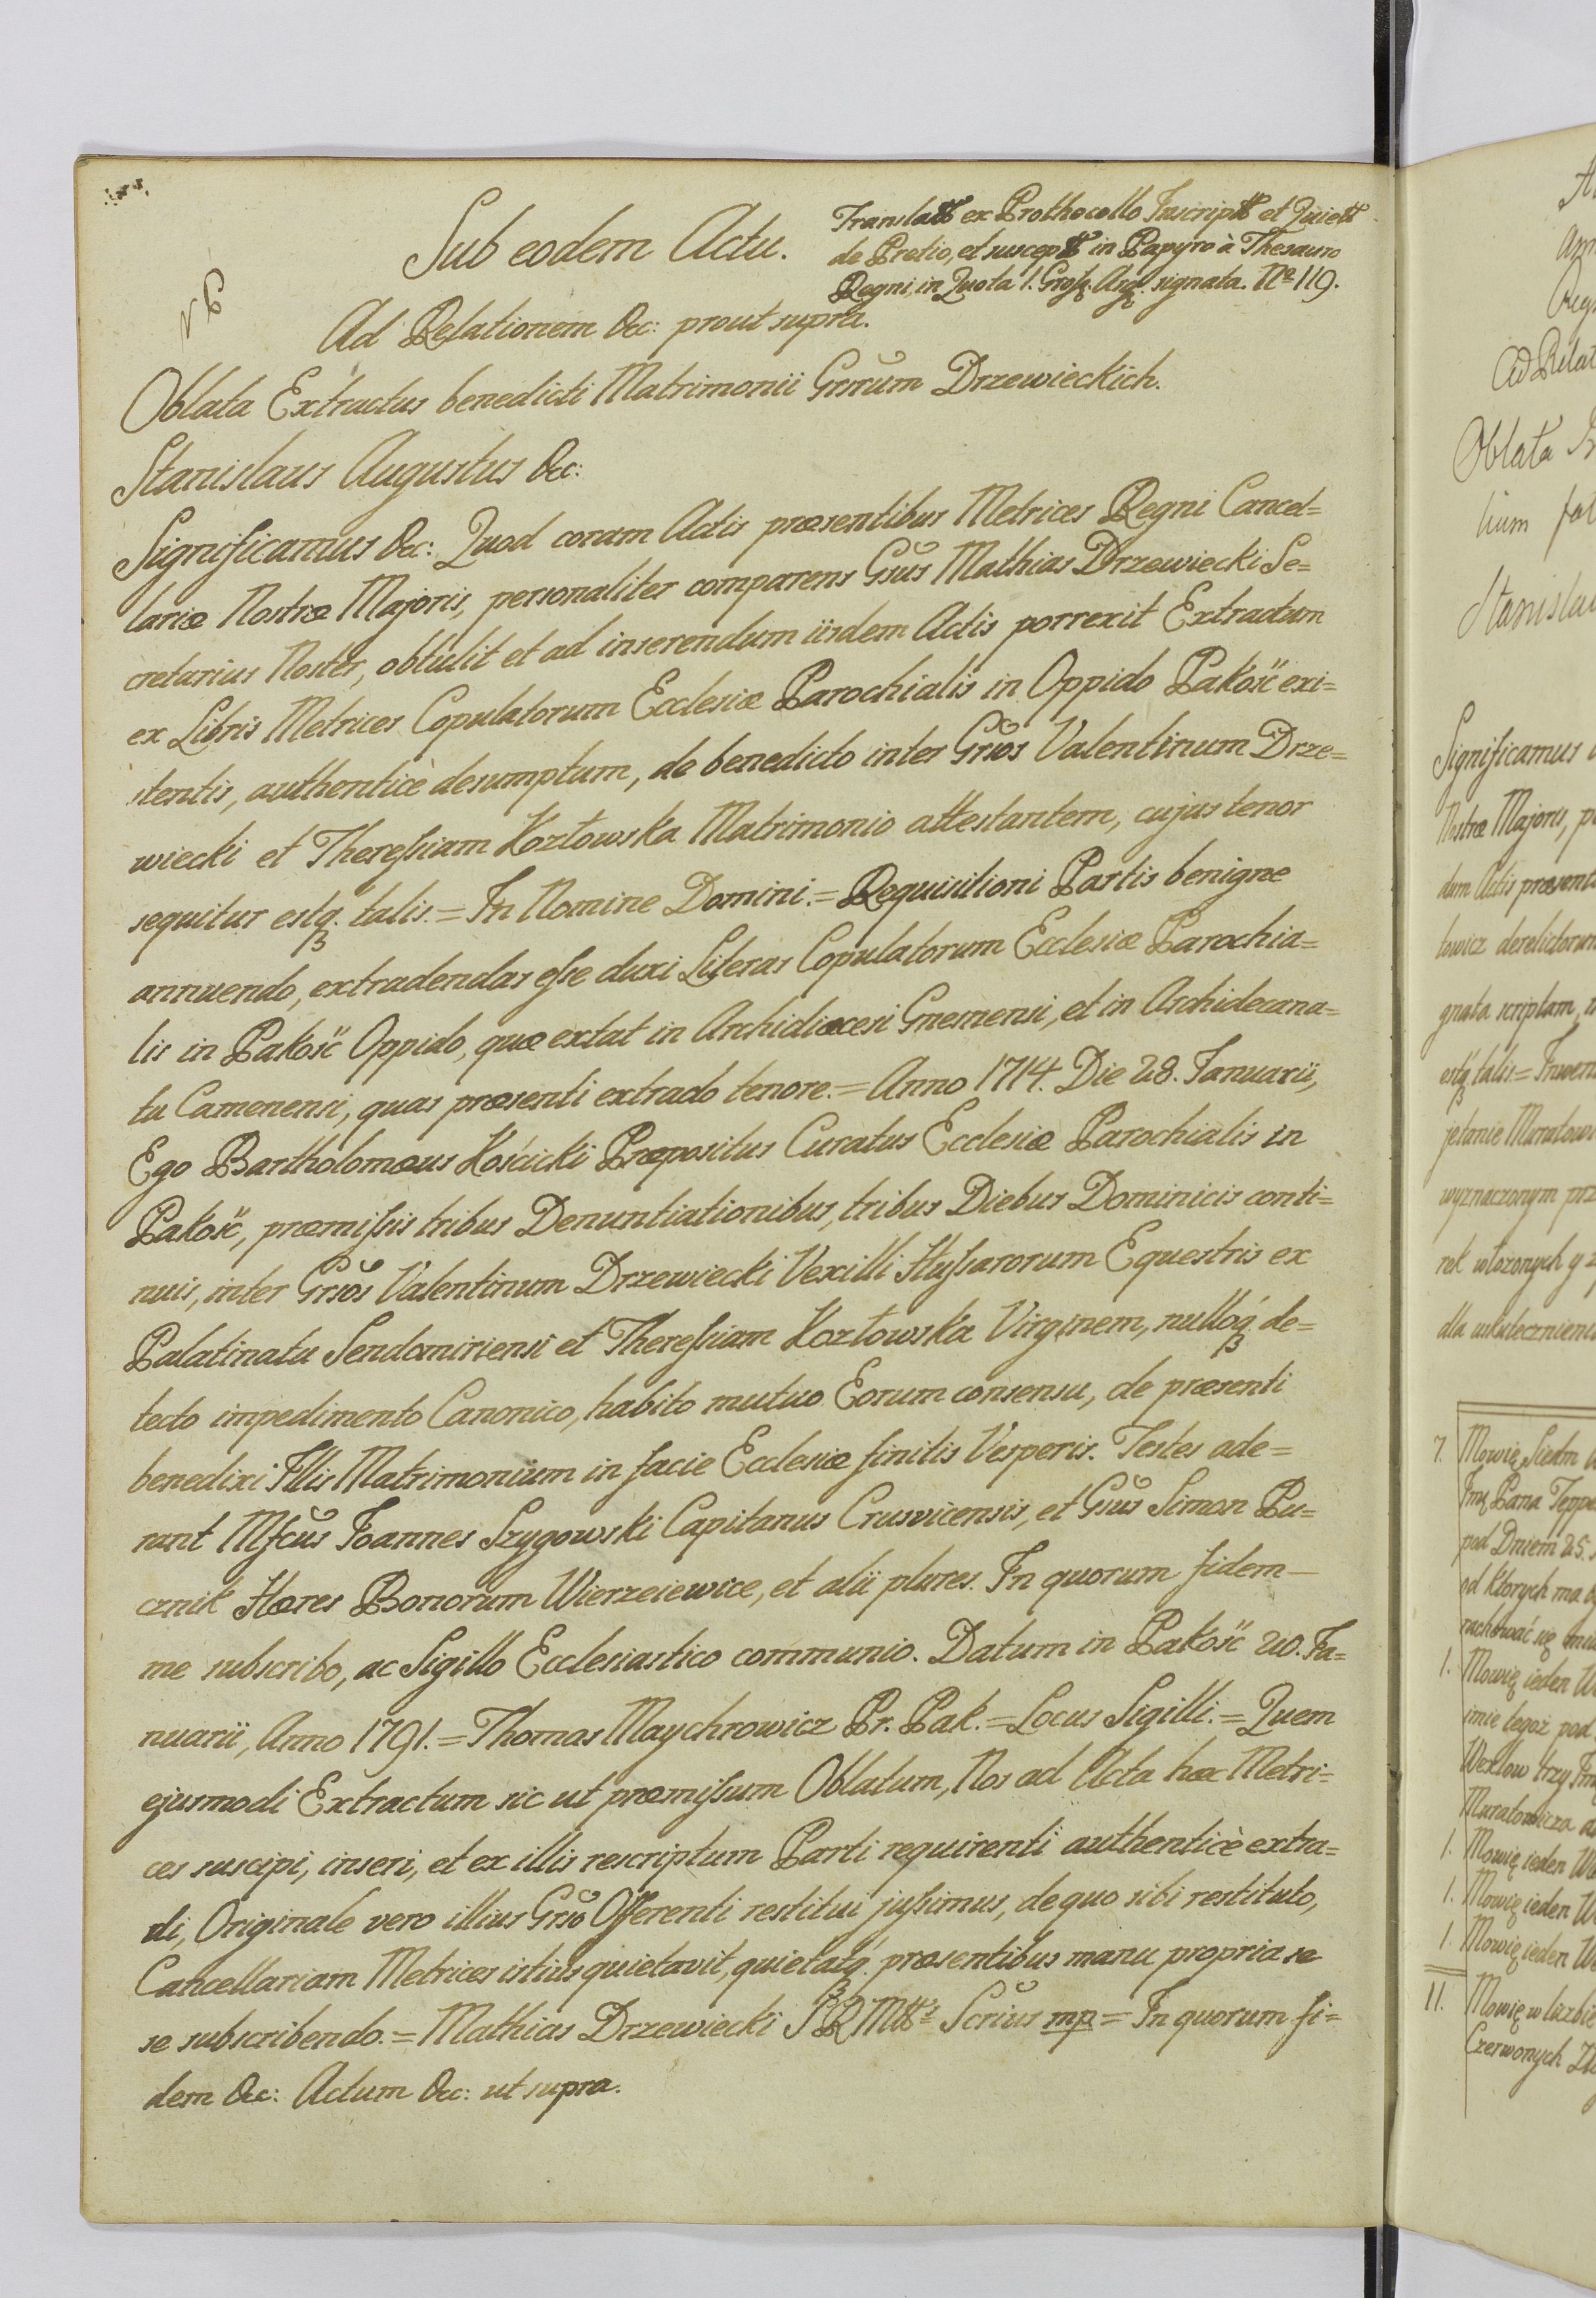 Sub eodem Actu.
Translatt ex Prothocollo Inscriptt et Quiett
de Pretio, et susceptt in Papyro à Thesauro
Regni, in Quota 1. Grosß. Arg. signata. No 119.
Ad Relationem &c: prout supra.
Oblata Extractus benedicti Matrimonii Grsrum Drzewieckich.
Stanislaus Augustus &c:
Significamus &c: Quod coram Actis præsentibus Metrices Regni Cancel=
lariæ Nostræ Majoris, personaliter comparens Gsus Mathias Drzewiecki Se=
cretarius Noster, obtulit et ad inserendum iisdem Actis porrexit Extractum
ex Libris Metrices Copulatorum Ecclesiæ Parochialis in Oppido Pakość exi=
stentis, authenticè desumptum, de benedicto inter Grsos Valentinum Drze=
wiecki et Theressiam Kozłowska Matrimonio attestantem, cujus tenor
sequitur estq. talis. = In Nomine Domini. = Requisitioni Partis benigne
annuendo, extradendas esse duxi Literas Copulatorum Ecclesiæ Parochia=
lis in Pakość Oppido, quæ extat in Archidiœcesi Gnesnensi, et in Archidecana=
tu Camenensi, quas præsenti extrado tenore. = Anno 1714. Die 28. Januarii,
Ego Bartholomæus Kościcki Præpositus Curatus Ecclesiæ Parochialis in
Pakość, præmissis tribus Denuntiationibus, tribus Diebus Dominicis conti=
nuis, inter Grsos Valentinum Drzewiecki Vexilli Hussarorum Equestris ex
Palatinatu Sendomiriensi et Theressiam Kozłowska Virginem, nulloq. de=
tecto impedimento Canonico, habito mutuo Eorum consensu, de præsenti
benedixi Illis Matrimonium in facie Ecclesiæ finitis Vesperis. Testes ade=
rant Mfcus Joannes Szygowski Capitanus Crusvicensis, et Gsus Simon Pu=
cznik Hæres Bonorum Wierzeiewice, et alii plures. In quorum fidem —
me subscribo, ac Sigillo Ecclesiastico communio. Datum in Pakość 20. Ja=
nuarii, Anno 1791. = Thomas Maychrowicz Pr. Pak. = Locus Sigilli. = Quem
ejusmodi Extractum sic ut præmissum Oblatum, Nos ad Acta hæc Metri=
ces suscipi, inseri, et ex illis rescriptum Parti requirenti authenticè extra=
di, Originale vero illius Grso Offerenti restitui jussimus, de quo sibi restituto,
Cancellariam Metrices istius quietavit, quietatq. præsentibus manu propria se
se subscribendo. = Mathias Drzewiecki S R Mttis Scrius mp = In quorum fi=
dem &c: Actum &c: ut supra.
Ad Relat
Oblata
lium
Stanislau
Significamus
Nostræ Majoris, p
dum Actis præsent
towicz derelictorum
gnata scriptam
estq talis = Inwen
jetanie Muratowi
wyznaczonym prz
rek włożonych y z
dla uskutecznieni
7. Mowię Siedm
Imę Pana Teppe
pod Dniem 25.
od ktorych ma
rachować się
1. Mowię ieden
imie tegoż pod
Wexlow trzy
Muratowicza
1. Mowię ieden
1. Mowię ieden
1. Mowię ieden
11. Mowię w liczbie
Czerwonych